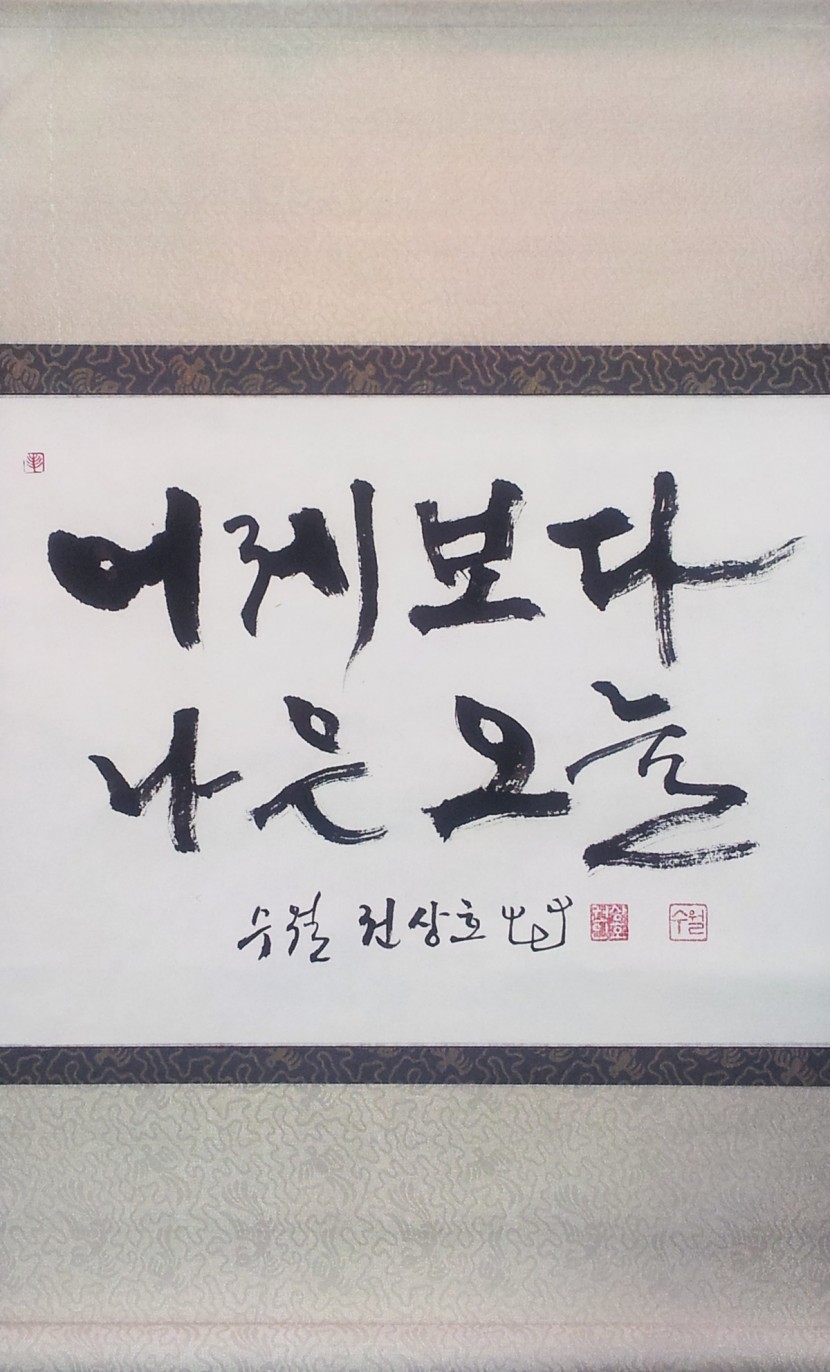 어제보다
나은 오늘
수월 권상호
수월